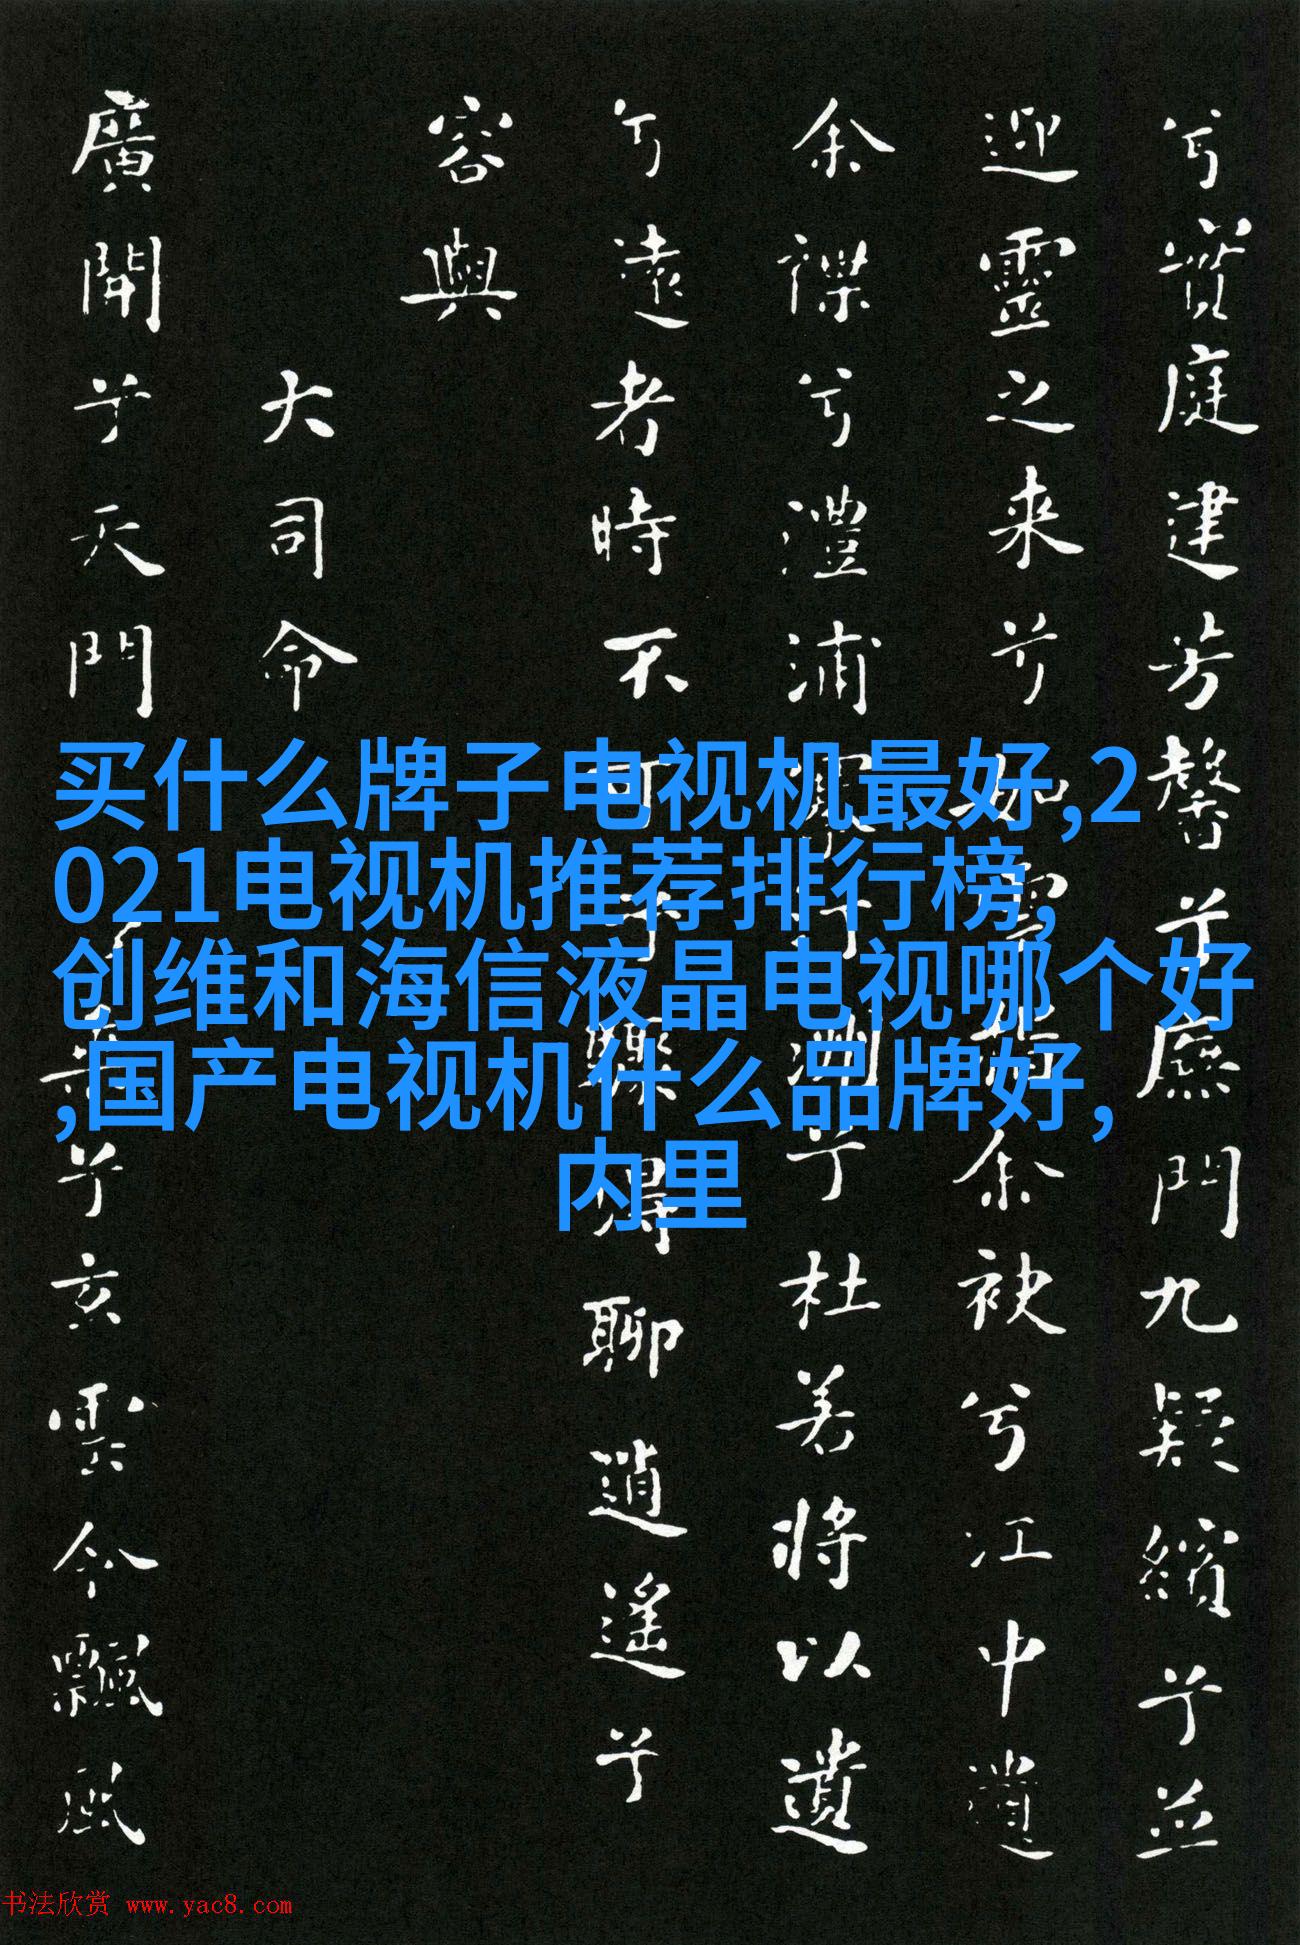 兮實庭建芳馨兮廡門九疑繽兮並
迎靈之来兮如雲捐余袂兮江中遺
余褋兮澧浦搴汀洲兮杜若將以遺
兮遠者時不可兮驟得聊逍遥兮
容與
大司命
廣開兮天門兮玄雲令飄風
买什么牌子电视机最好,2
021电视机推荐排行榜,
创维和海信液晶电视哪个好
,国产电视机什么品牌好,
内里
书法欣赏 www.yac8.com